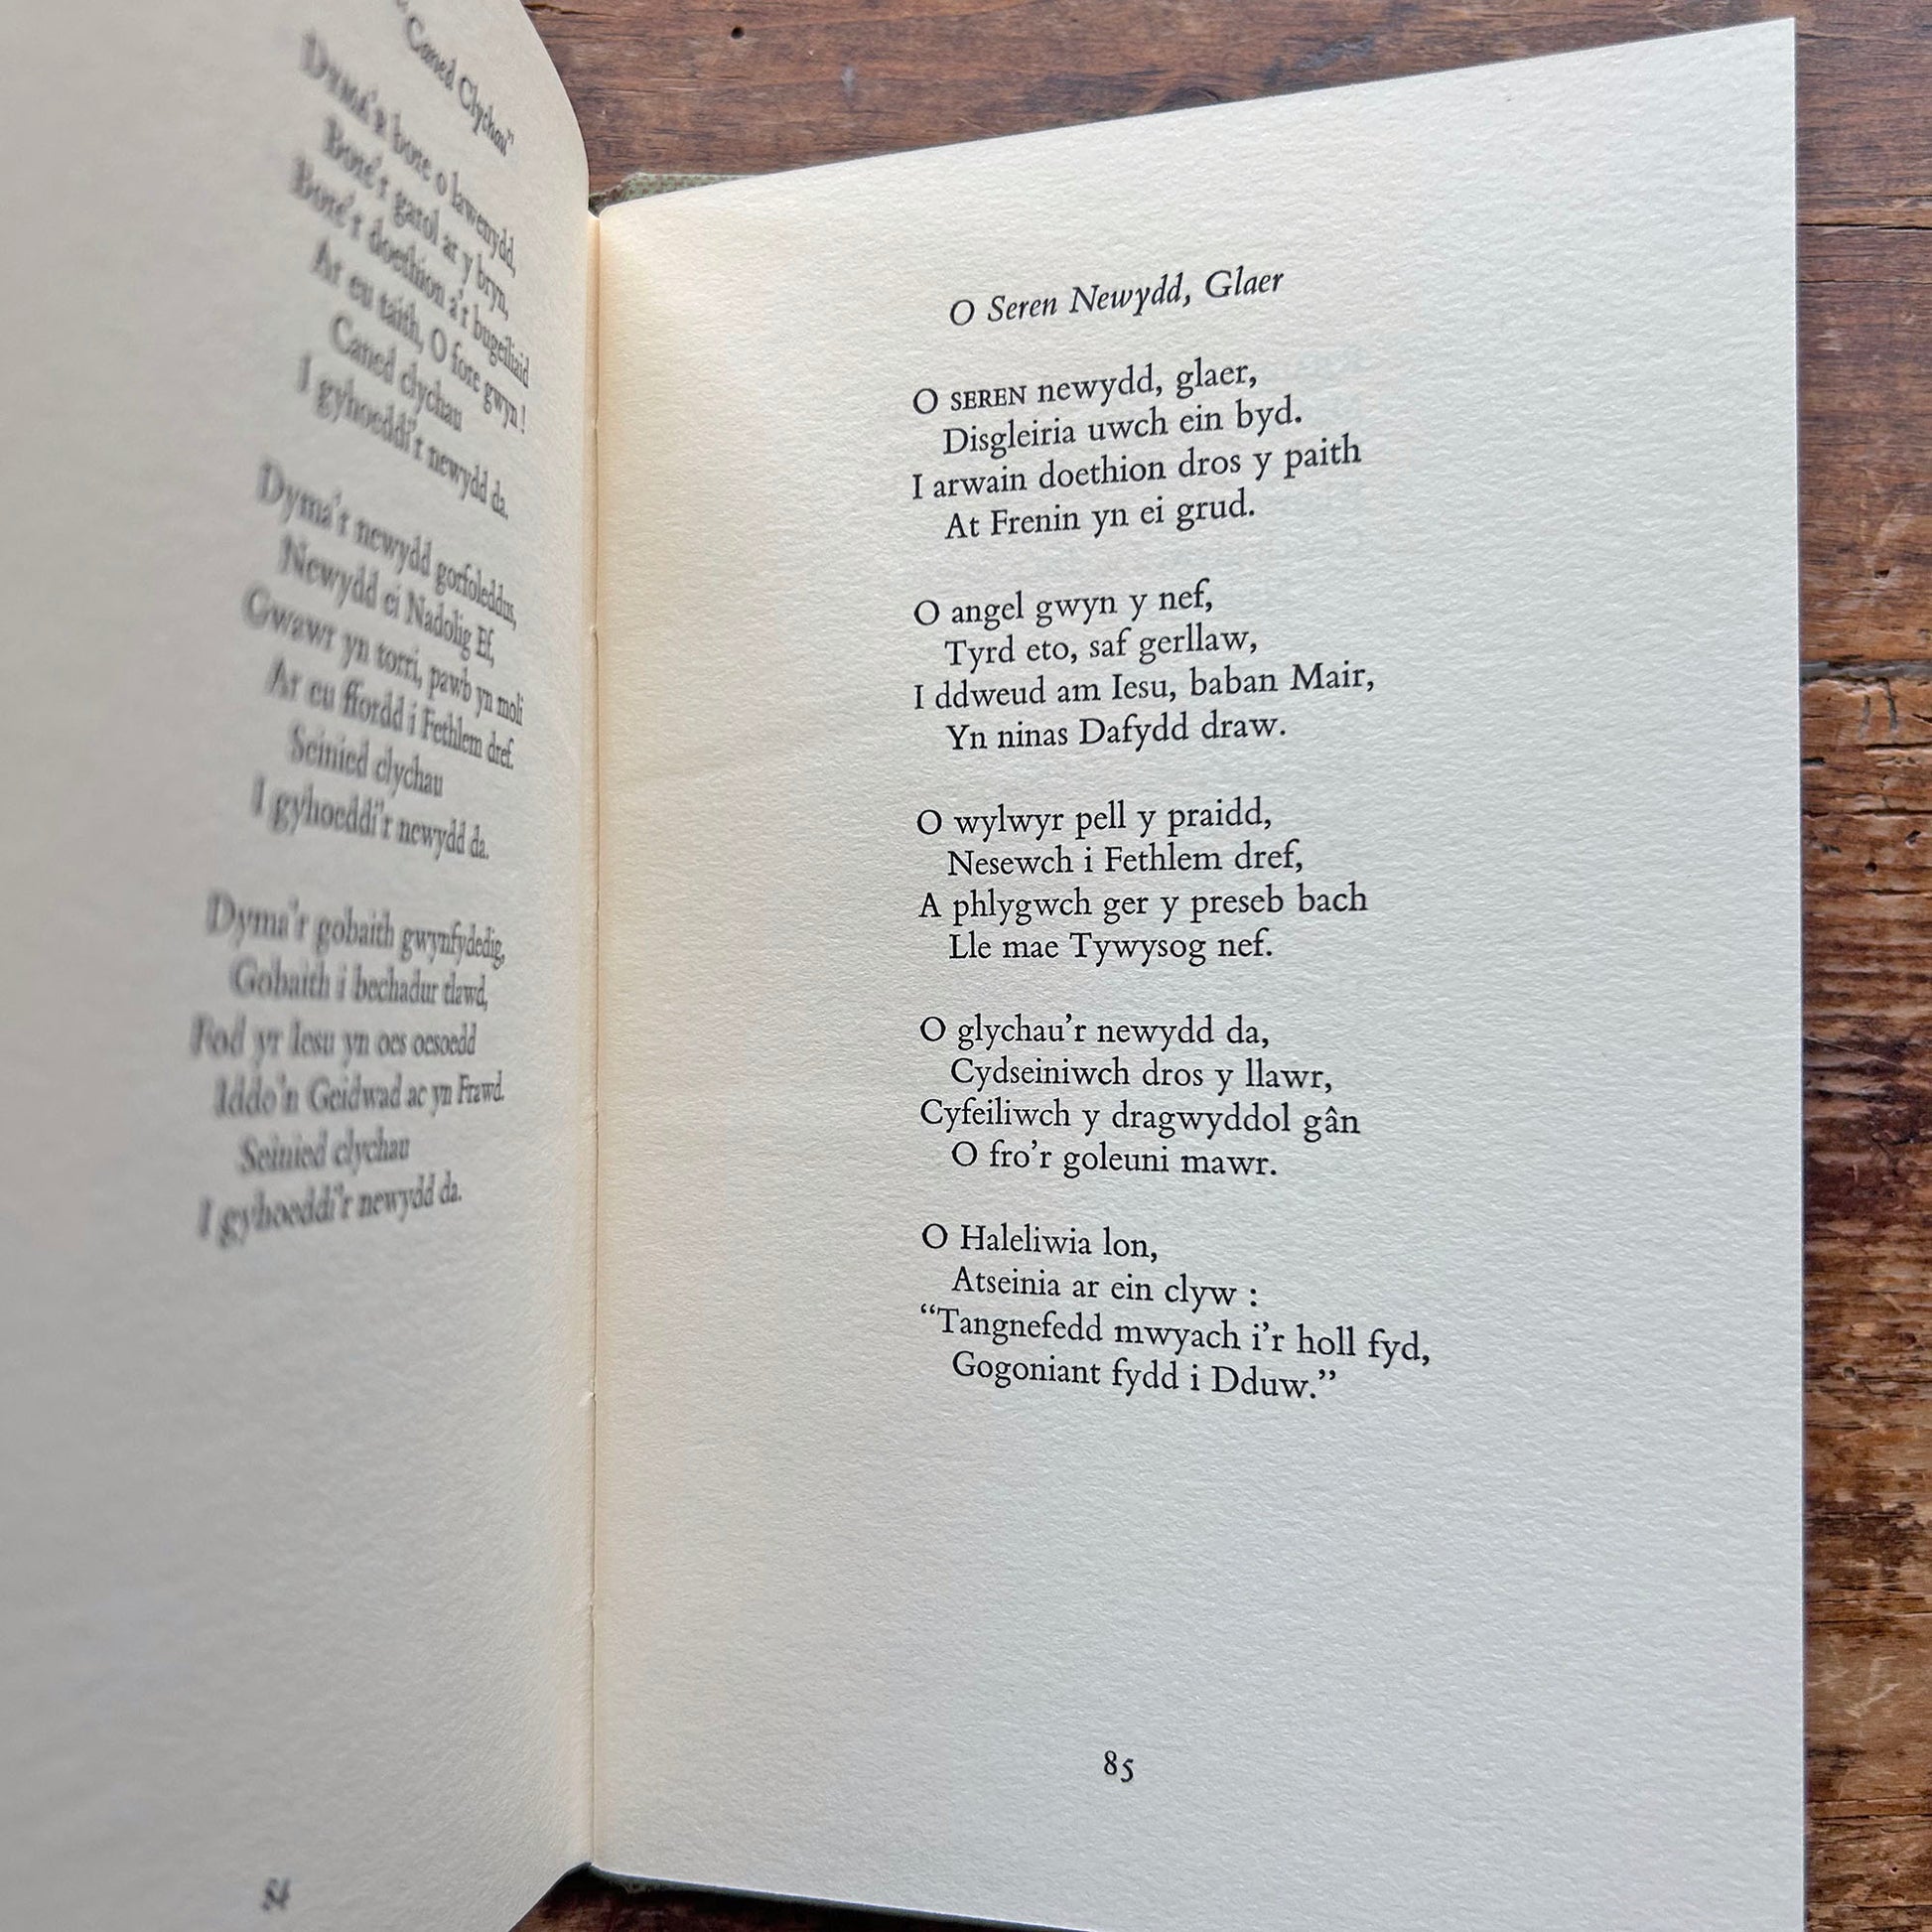 “Caned Clychau”
DYMA'R bore o lawenydd,
Bore'r garol ar y bryn,
Bore'r doethion a'r bugeiliaid
Ar eu taith, O fore gwyn!
Caned clychau
I gyhoeddi'r newydd da.
Dyma'r newydd gorfoleddus,
Newydd ei Nadolig Ef,
Gwawr yn torri, pawb yn moli
Ar eu ffordd i Fethlem dref.
Seinied clychau
I gyhoeddi'r newydd da.
Dyma'r gobaith gwynfydedig,
Gobaith i bechadur tlawd,
Fod yr Iesu yn oes oesoedd
Iddo'n Geidwad ac yn Frawd.
Seinied clychau
I gyhoeddi'r newydd da.
84
O Seren Newydd, Glaer
O SEREN newydd, glaer,
Disgleiria uwch ein byd.
I arwain doethion dros y paith
At Frenin yn ei grud.
O angel gwyn y nef,
Tyrd eto, saf gerllaw,
I ddweud am Iesu, baban Mair,
Yn ninas Dafydd draw.
O wylwyr pell y praidd,
Nesewch i Fethlem dref,
A phlygwch ger y preseb bach
Lle mae Tywysog nef.
O glychau’r newydd da,
Cydseiniwch dros y llawr,
Cyfeiliwch y dragwyddol gân
O fro’r goleuni mawr.
O Haleliwia lon,
Atseinia ar ein clyw :
“Tangnefedd mwyach i’r holl fyd,
Gogoniant fydd i Dduw.”
85